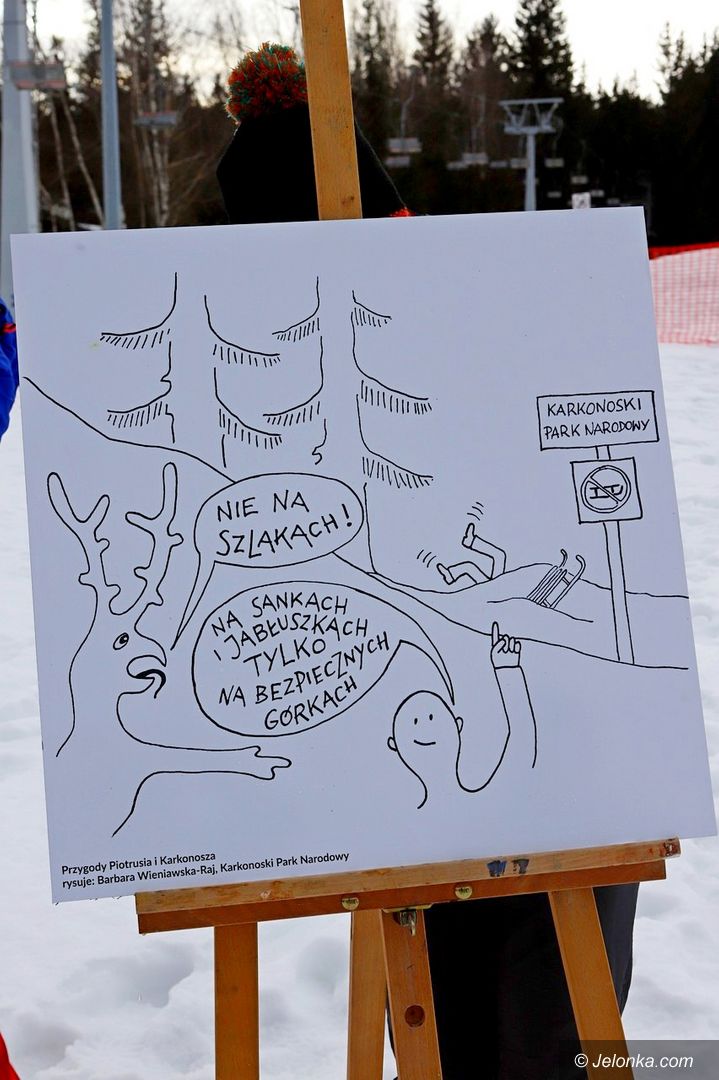 KARKONOSKI
PARK NARODOWY
NIE NA
SZLAKACH!
NA SANKACH
I JABŁUSZKACH
TYLKO
NA BEZPIECZNYCH
GÓRKACH
Przygody Piotrusia i Karkonosza
rysuje: Barbara Wieniawska-Raj, Karkonoski Park Narodowy
© Jelonka.com